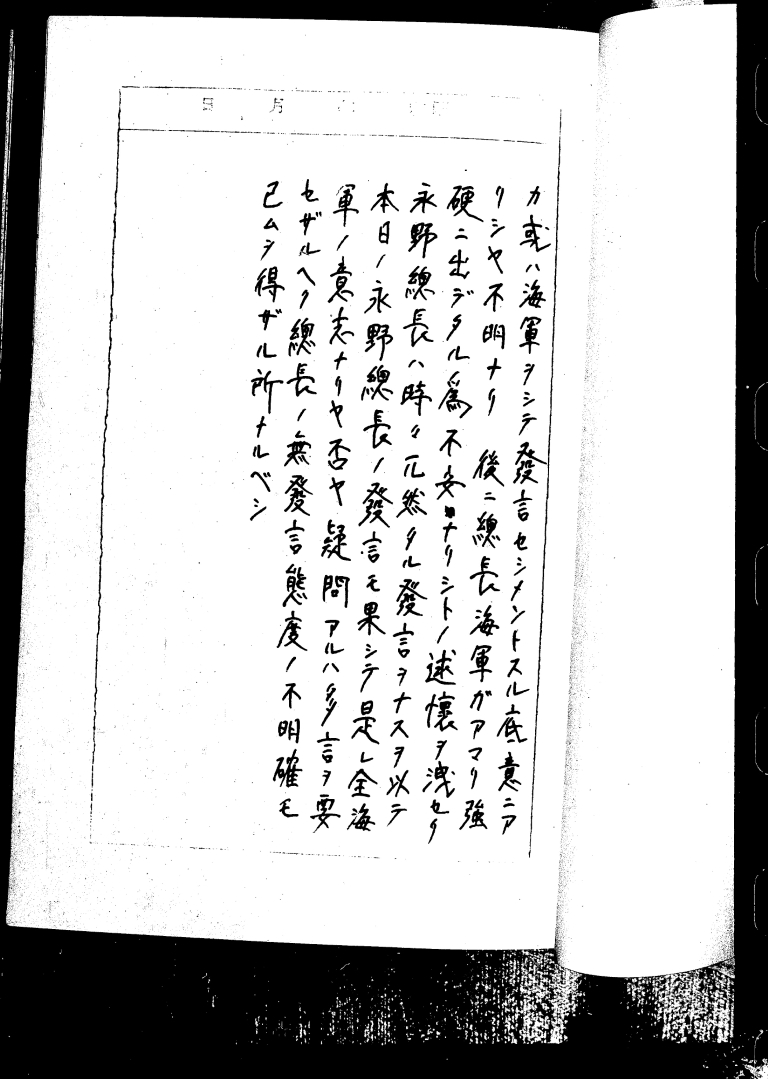 月 日
カ或ハ海軍ヲシテ發言セシメントスル底意ニア
リシヤ不明ナリ 後ニ總長海軍ガアマリ強
硬ニ出デタルノ爲不安ナリシトノ述懷ヲ洩セリ
永野總長ハ時々兀然タル發言ヲナスヲ以テ
本日ノ永野總長ノ發言モ果シテ是レ全海
軍ノ意志ナリヤ否ヤ疑問アルハ多言ヲ要
セザルヘク總長ノ無發言態度ノ不明確モ
已ムヲ得ザル所ナルベシ